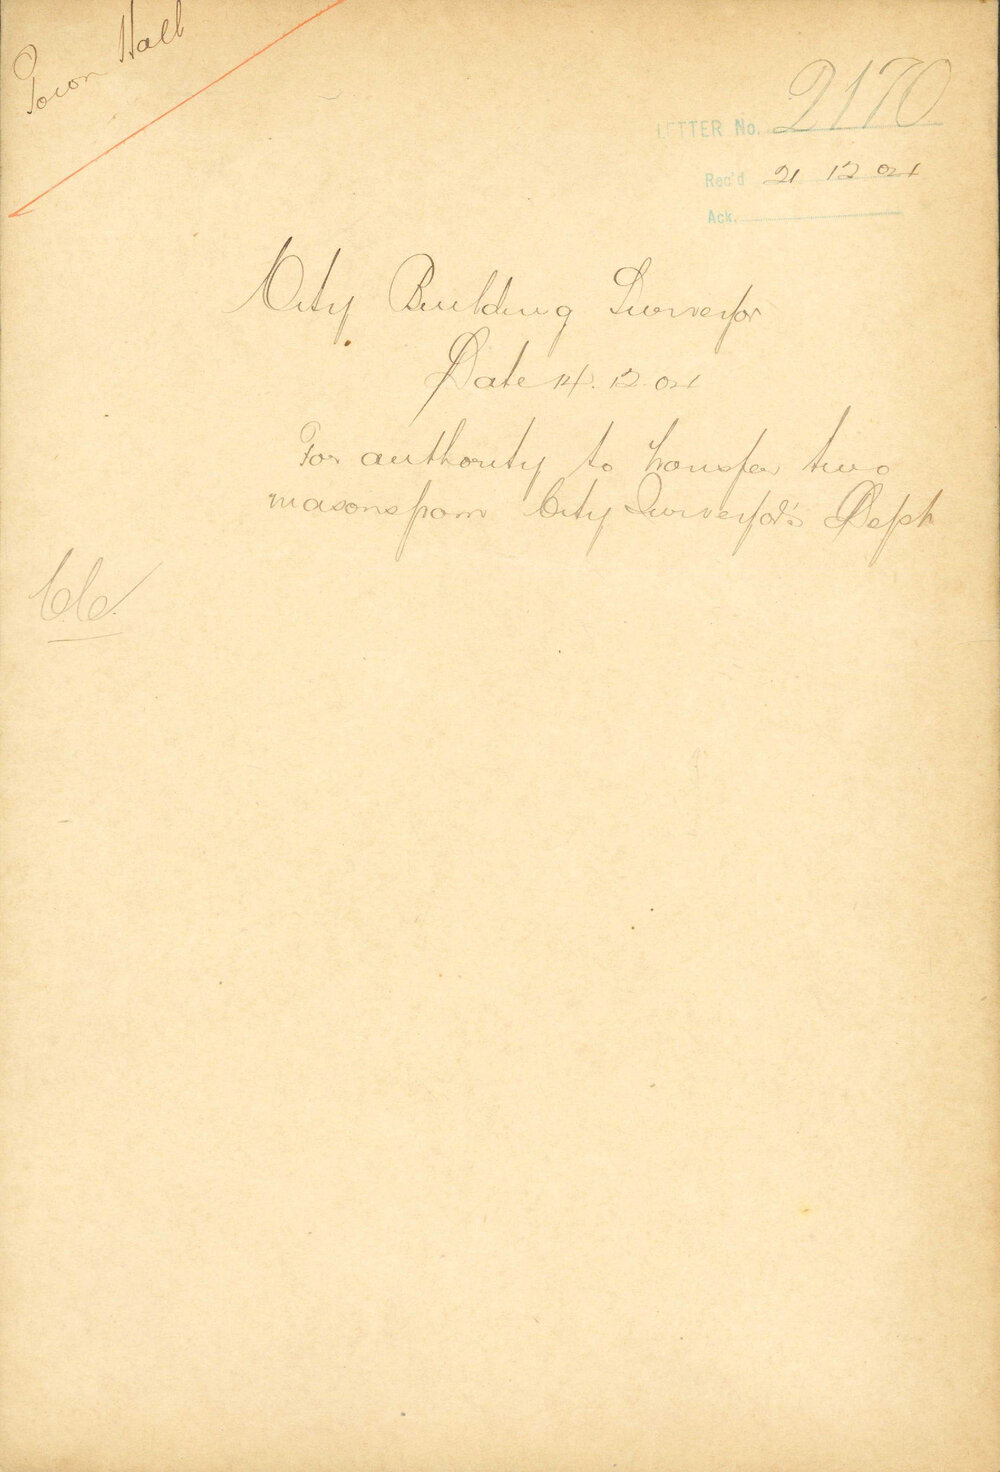 Town Hall
LETTER No. 2170
Rec'd 21 12 04
Ack.
City Building Surveyor
Date 14. 12. 04
For authority to transfer two
masons from City Surveyor's Dept
C.C.